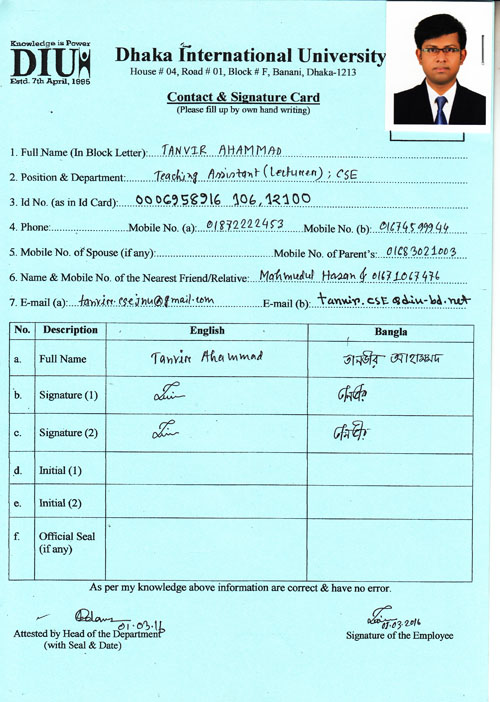 Knowledge is Power
DIU
Estd. 7th April, 1995
Dhaka International University
House # 04, Road # 01, Block # F, Banani, Dhaka-1213
Contact & Signature Card
(Please fill up by own hand writing)
1. Full Name (In Block Letter): TANVIR AHAMMAD
2. Position & Department: Teaching Assistant (Lecturer); CSE
3. Id No. (as in Id Card): 0006958916 106,12100
4. Phone: Mobile No. (a): 01872222453 Mobile No. (b): 01674599944
5. Mobile No. of Spouse (if any): Mobile No. of Parent's: 01683021003
6. Name & Mobile No. of the Nearest Friend/Relative: Mahmudul Hasan & 01671067476
7. E-mail (a): tanvir.csejnu@gmail.com E-mail (b): tanvir.CSE@diu-bd.net
No. Description English Bangla
a. Full Name Tanvir Ahammad তানভীর আহাম্মদ
b. Signature (1)
c. Signature (2)
d. Initial (1)
e. Initial (2)
f. Official Seal
(if any)
As per my knowledge above information are correct & have no error.
01.03.16 01.03.2016
Attested by Head of the Department Signature of the Employee
(with Seal & Date)